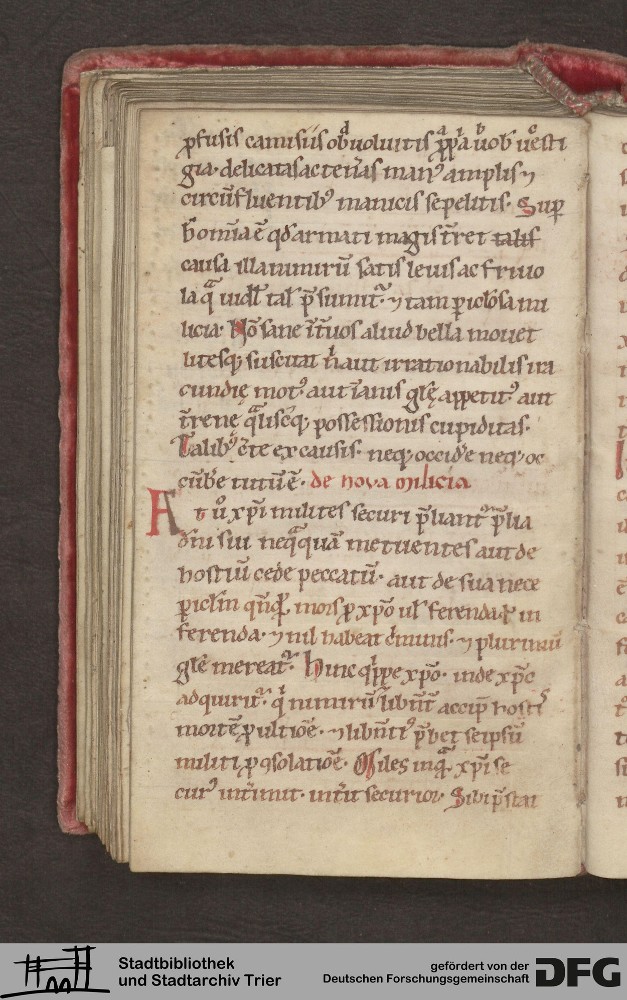 ꝓfusis camisiis obuoluitis ꝓp̄a uob uesti
gia· delicatas ac teneras man᷒ amplis ⁊
circūfluentib᷒ manicis sepelitis· Suꝑ
h̄ omnia ē qd armati magis t̄ret talis
causa illa nimirū satis leuis ac friuo
la qͣ uidl̄ tal p̄sumitᷣ· ⁊ tam piclosa mi
licia· Nō sane īt uos aliud bella mouet
litesqꝫ suscitat n̄ aut irrationabilis ira
cundię mot᷒ aut īanis gl̄ę appetit᷒ aut
t̄renę qͣliscēqꝫ possessionis cupiditas·
Talib᷒ c̄te ex causis· neqꝫ occidꝰe neqꝫ oc
cūbe tutū ē· de nova milicia
At uͦ xp̄i milites securi p̄liantᷣ p̄lia
dn̄i sui neqͣquā metuentes aut de
hostiū cede peccatū· aut de sua nece
ꝑiclm̄ qn̄qͥdē mors ꝓ xp̄o ul̄ ferenda ul̄ in
ferenda· ⁊ nil habeat cͥminis· ⁊ plurimū
gl̄ę mereatᷣ· Hinc qͥppe xp̄o· inde xp̄c
adquiritᷣ· qͥ nimirū libn̄t̄ accip̄ hostis
mortē ꝓ ultiōe· ⁊ libn̄ti᷒ p̄bet seipsū
militi ꝓ ꝯsolatiōe· Miles inqͣ xp̄i se
cur᷒ int̄imit· int̄it securior· Sibi p̄stat
Stadtbibliothek
und Stadtarchiv Trier
gefördert von der
Deutschen Forschungsgemeinschaft
DFG